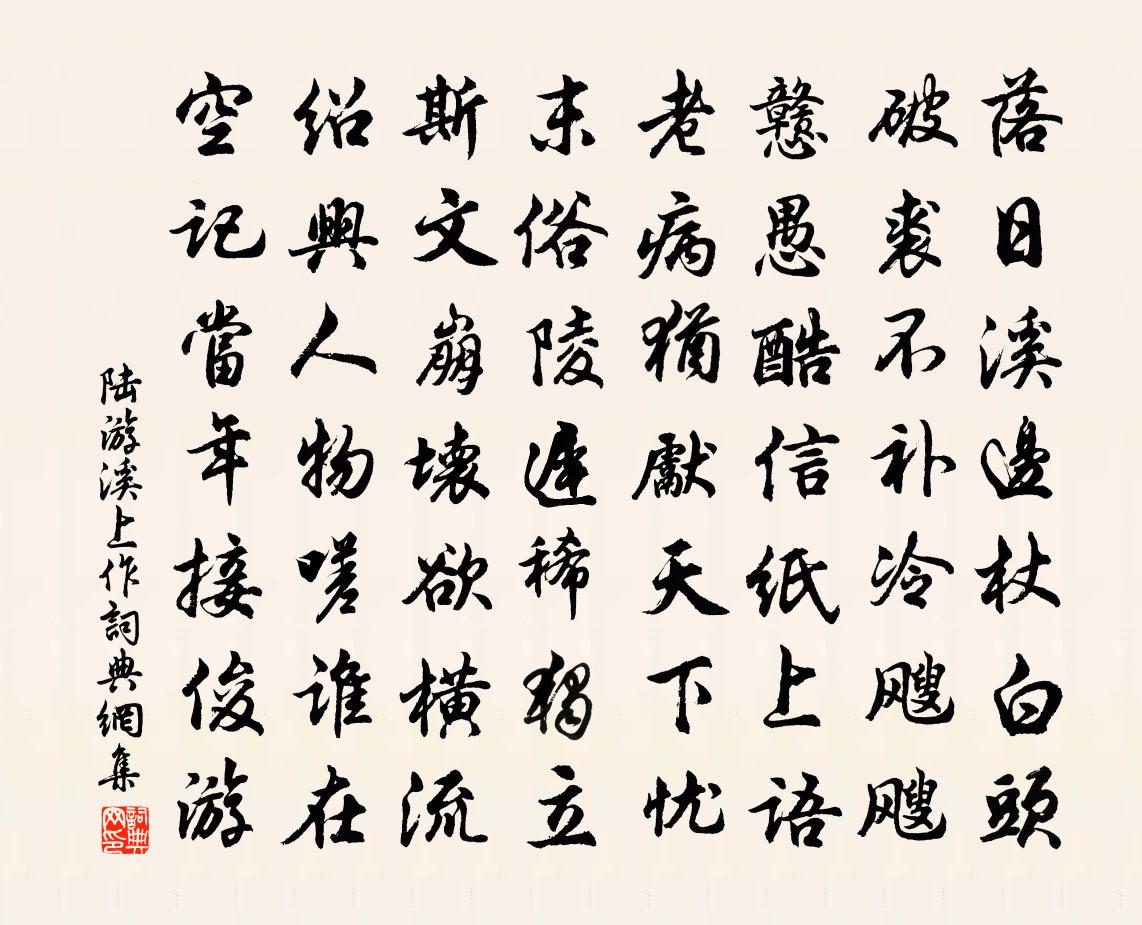 落日溪邊杖白頭
破裘不补冷飕飕
戇愚酷信纸上语
老病猶獻天下忧
末俗陵遲稀獨立
斯文崩壊欲横流
绍興人物嗟谁在
空记當年接俊游
陆游溪上作詞典網集
詞典网印